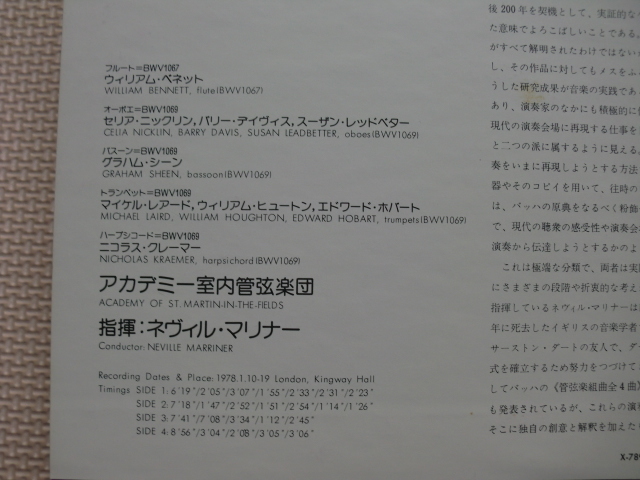 フルート=BWV1067
ウィリアム・ベネット
WILLIAM BENNETT, flute(BWV1067)
オーボエ=BWV1069
セリア・ニックリン, バリー・デイヴィス, スーザン・レッドベター
CELIA NICKLIN, BARRY DAVIS, SUSAN LEADBETTER, oboes(BWV1069)
バスーン=BWV1069
グラハム・シーン
GRAHAM SHEEN, bassoon(BWV1069)
トランペット=BWV1069
マイケル・レアード, ウィリアム・ヒュートン, エドワード・ホバート
MICHAEL LAIRD, WILLIAM HOUGHTON, EDWARD HOBART, trumpets(BWV1069)
ハープシコード=BWV1069
ニコラス・クレーマー
NICHOLAS KRAEMER, harpsichord(BWV1069)
アカデミー室内管弦楽団
ACADEMY OF ST. MARTIN-IN-THE-FIELDS
指揮:ネヴィル・マリナー
Conductor: NEVILLE MARRINER
Recording Dates & Place: 1978.1.10-19 London, Kingway Hall
Timings SIDE 1: 6′19″/2′05″/3′07″/1′55″/2′33″/2′31″/2′23″
SIDE 2: 7′18″/1′47″/2′52″/1′51″/2′54″/1′14″/1′26″
SIDE 3: 7′41″/7′08″/3′34″/1′12″/2′45″
SIDE 4: 8′56″/3′04″/2′08″/3′05″/3′06″
後200年を契機として, 実証的な
た意味でよろこばしいことである。
がすべて解明されたわけではない
し, その作品に対してもメスをふ
うした研究成果が音楽の実践であ
あり, 演奏家のなかにも積極的に
現代の演奏会場に再現する仕事を
と二つの派に属するように見える。
奏をいまに再現しようとする方法
器やそのコピイを用いて, 往時の
は, バッハの原典をなるべく粉飾
で, 現代の聴衆の感受性や演奏会
演奏から伝達しようとするかのよ
これは極端な分類で, 両者は実
にさまざまの段階や折衷的な考え
指揮しているネヴィル・マリナーは
年に死去したイギリスの音楽学者
サーストン・ダートの友人で, ダー
式を確立するため努力をつづけて
してバッハの《管弦楽組曲全4曲》
も発表されているが, これらの演
そこに独自の創意と解釈を加えた